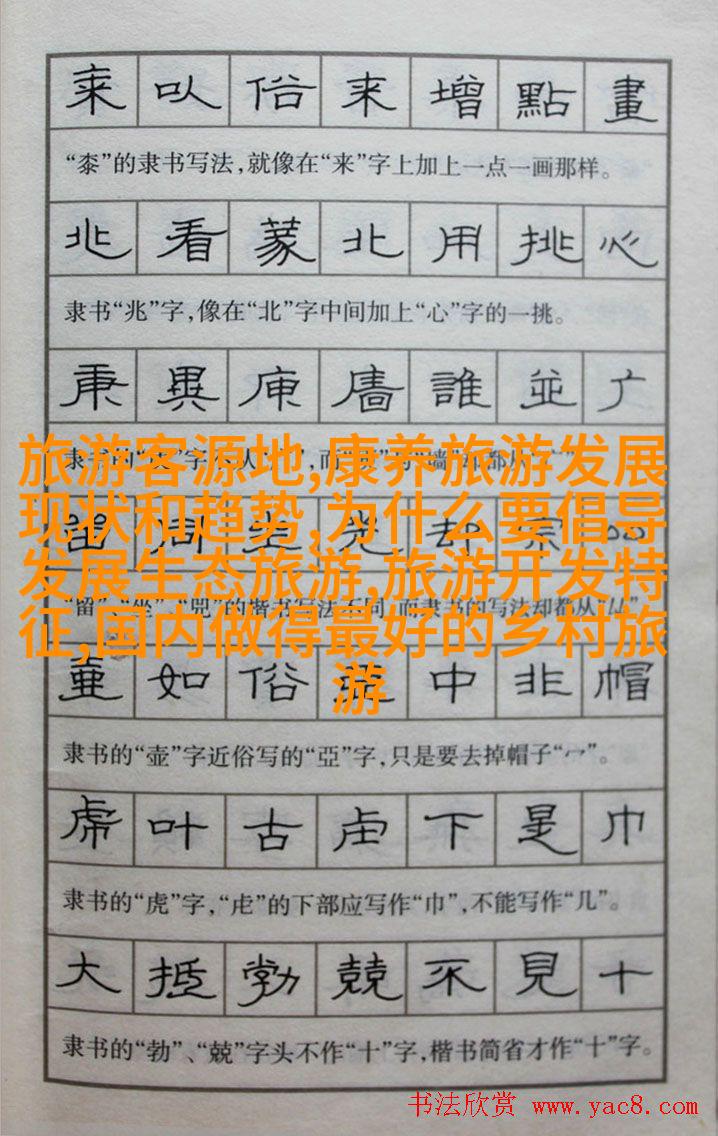 桼 叺 俗 来 增 點 畫
“桼”的隶书写法,就像在“来”字上加上一点一画那样。
兆 看 篆 北 用 挑 心
隶书“兆”字,像在“北”字中间加上“心”字的一挑。
庚 異 庫 廧 誰 並 广
旅游客源地,康养旅游发展
现状和趋势,为什么要倡导
发展生态旅游,旅游开发特
征,国内做得最好的乡村旅
游
如 俗 中 非 帽
隶书的“壶”字近俗写的“亞”字,只是要去掉帽子“冖”。
虎 叶 古 虍 下 是 巾
隶书的“虎”字,“虍”的下部应写作“巾”,不能写作“几”。
大 抵 勃 兢 不 見 十
隶书的“勃”、“兢”字头不作“十”字,楷书简省才作“十”字。
书法欣赏 www.yac8.com